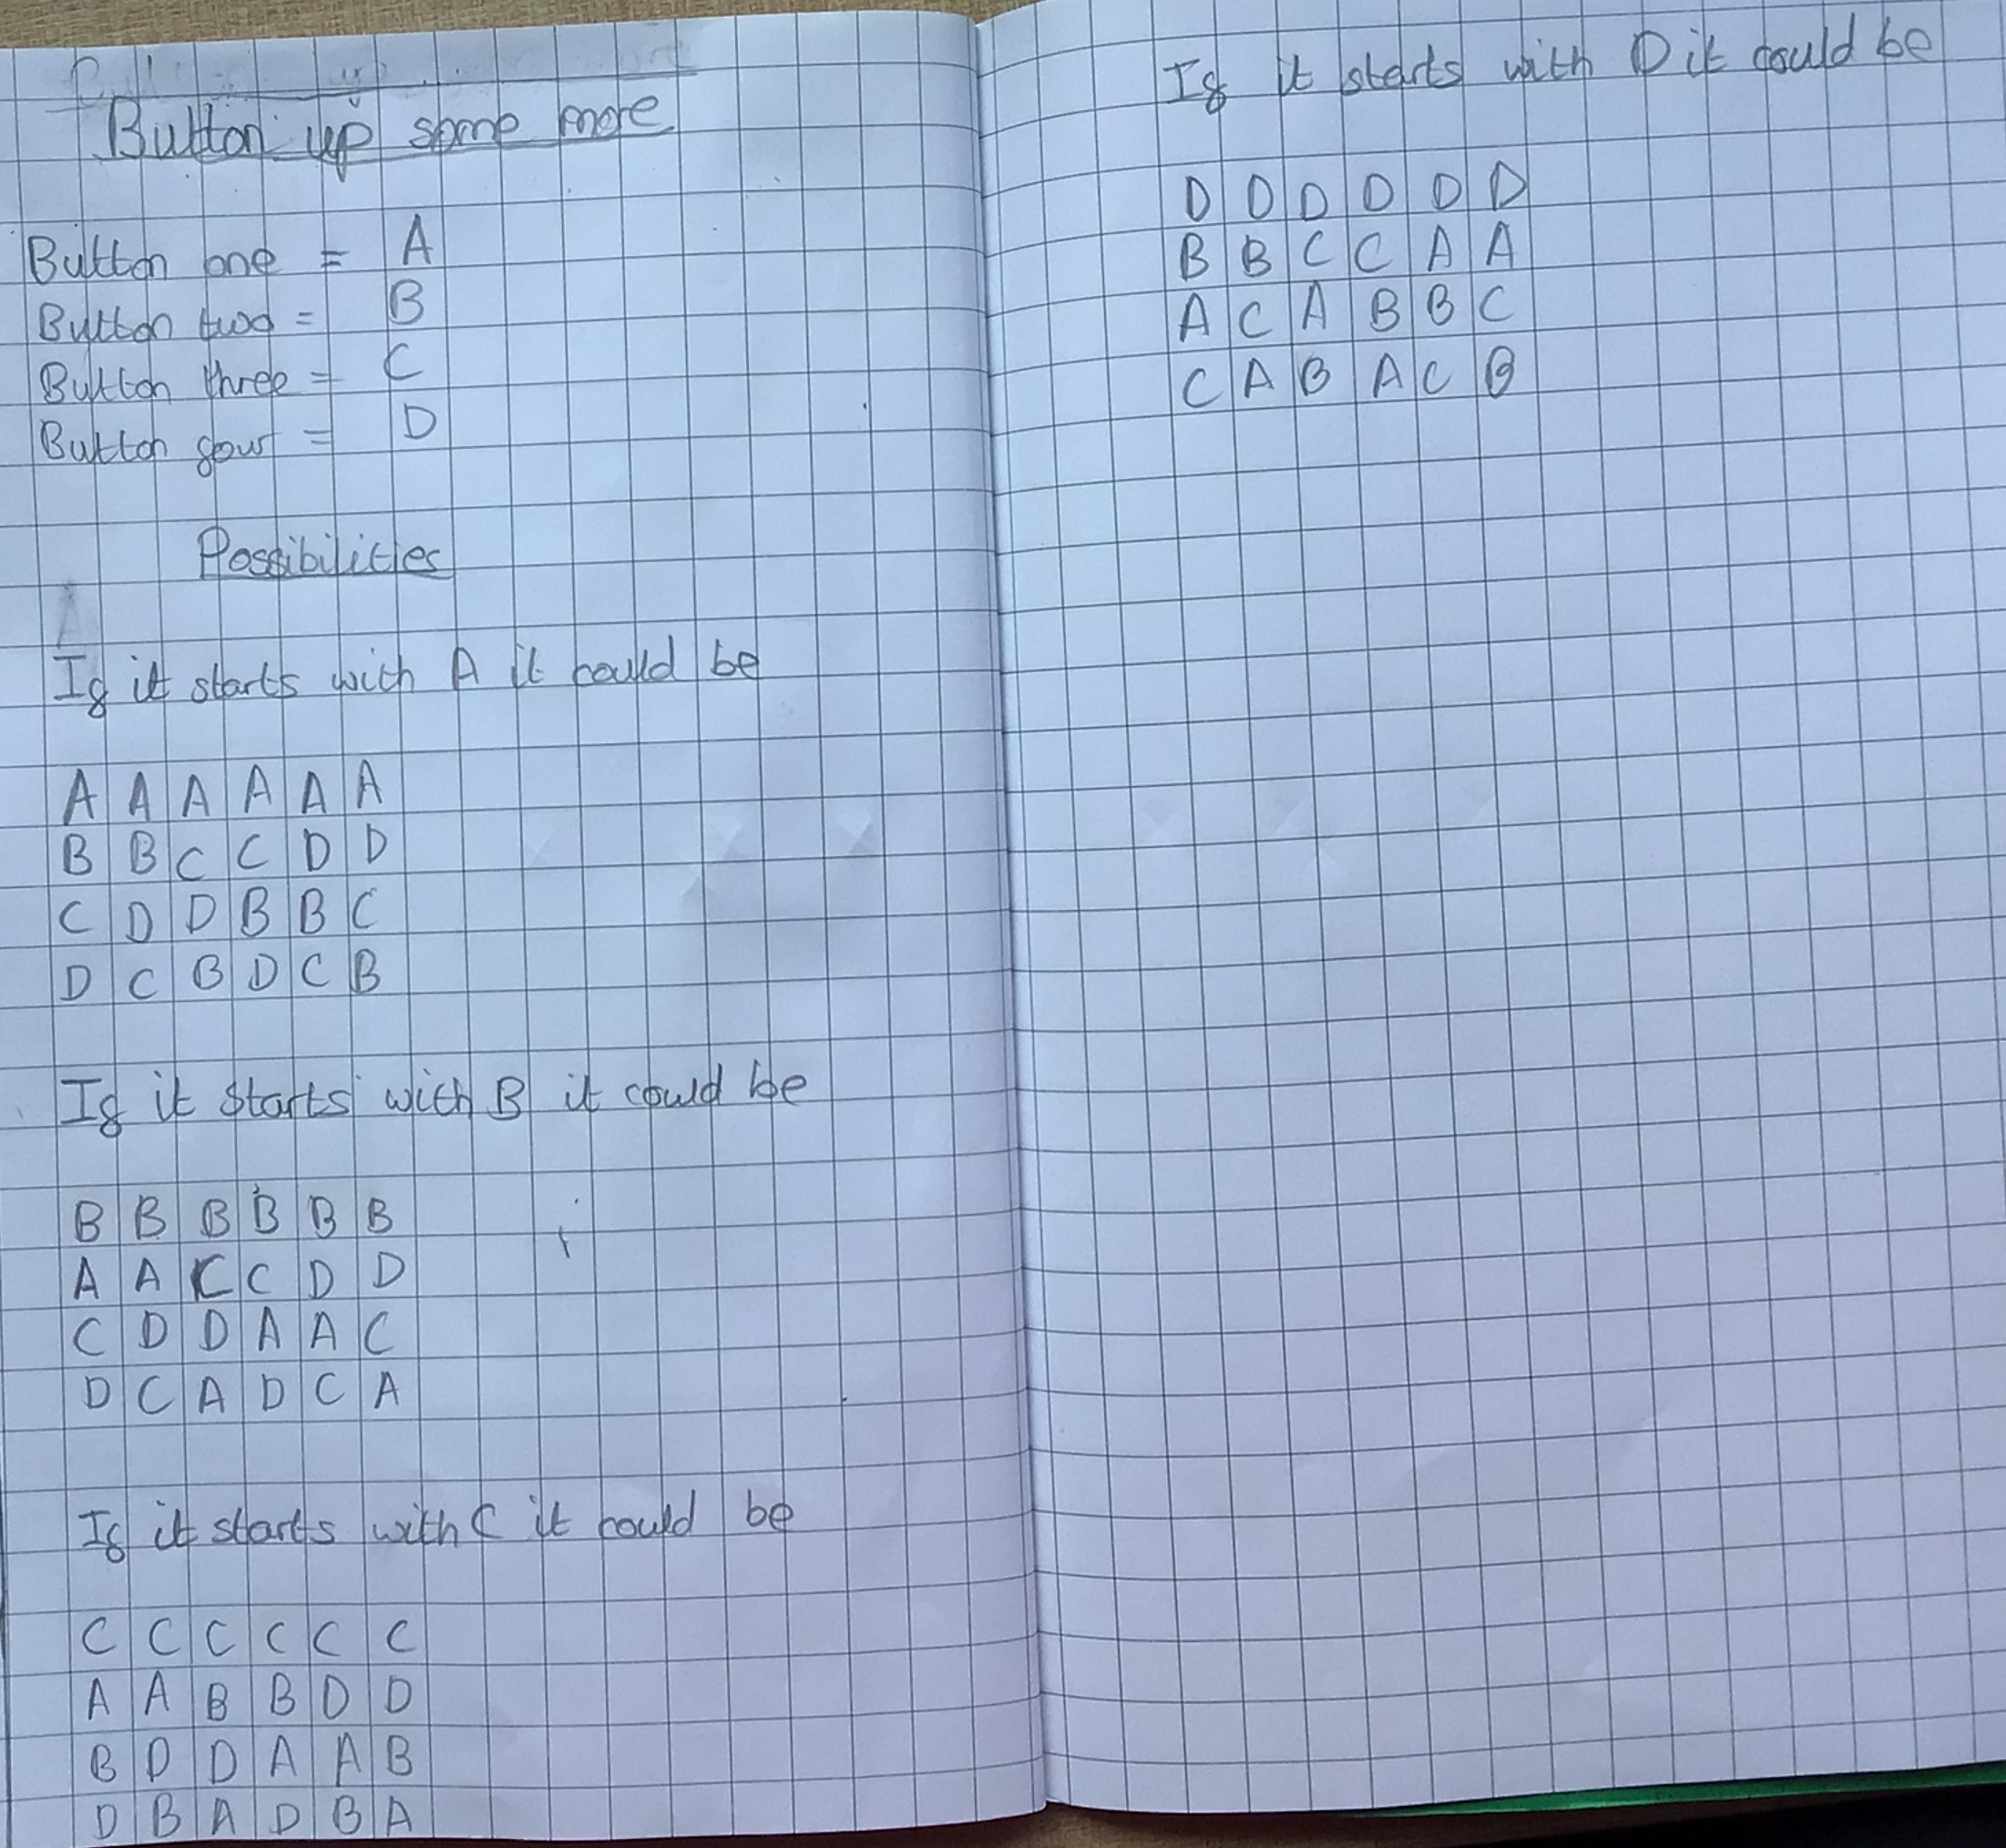 Button up some more
Button one = A
Button two = B
Button three = C
Button four = D
Possibilities
If it starts with A it could be
A A A A A A
B B C C D D
C D D B B C
D C B D C B
If it starts with B it could be
B B B B B B
A A C C D D
C D D A A C
D C A D C A
If it starts with C it could be
C C C C C C
A A B B D D
B D D A A B
D B A D B A
If it starts with D it could be
D D D D D D
B B C C A A
A C A B B C
C A B A C B